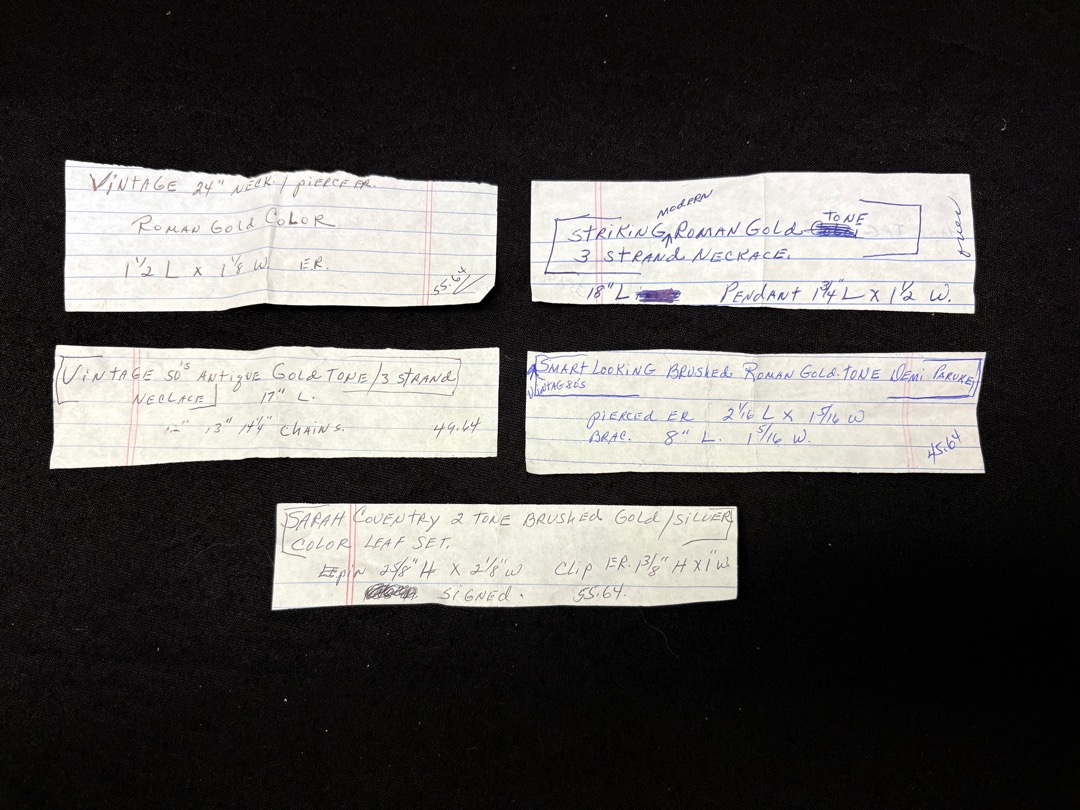 VINTAGE 24" NECK. / PIERCE ER.
ROMAN GOLD COLOR
1 1/2 L X 1 1/8 W ER.
55.64
MODERN
STRIKING ^ ROMAN GOLD TONE
3 STRAND NECKACE.
18" L PENDANT 1 3/4" L X 1 1/2 W.
over
VINTAGE 50'S ANTIQUE GOLD TONE / 3 STRAND
NECLACE 17" L.
12" 13" 14 1/4" CHAINS. 49.64
SMART LOOKING BRUSHED ROMAN GOLD-TONE DEMI PARURE
VINTAG 80'S
PIERCED ER 2 1/16 L X 1 5/16 W
BRAC. 8" L. 1 5/16 W.
45.64
SARAH COVENTRY 2 TONE BRUSHED GOLD / SILVER
COLOR LEAF SET.
pin 2 5/8" H X 2 1/8" W CLIP ER. 1 3/8" H X 1" W.
SIGNED. 55.64.